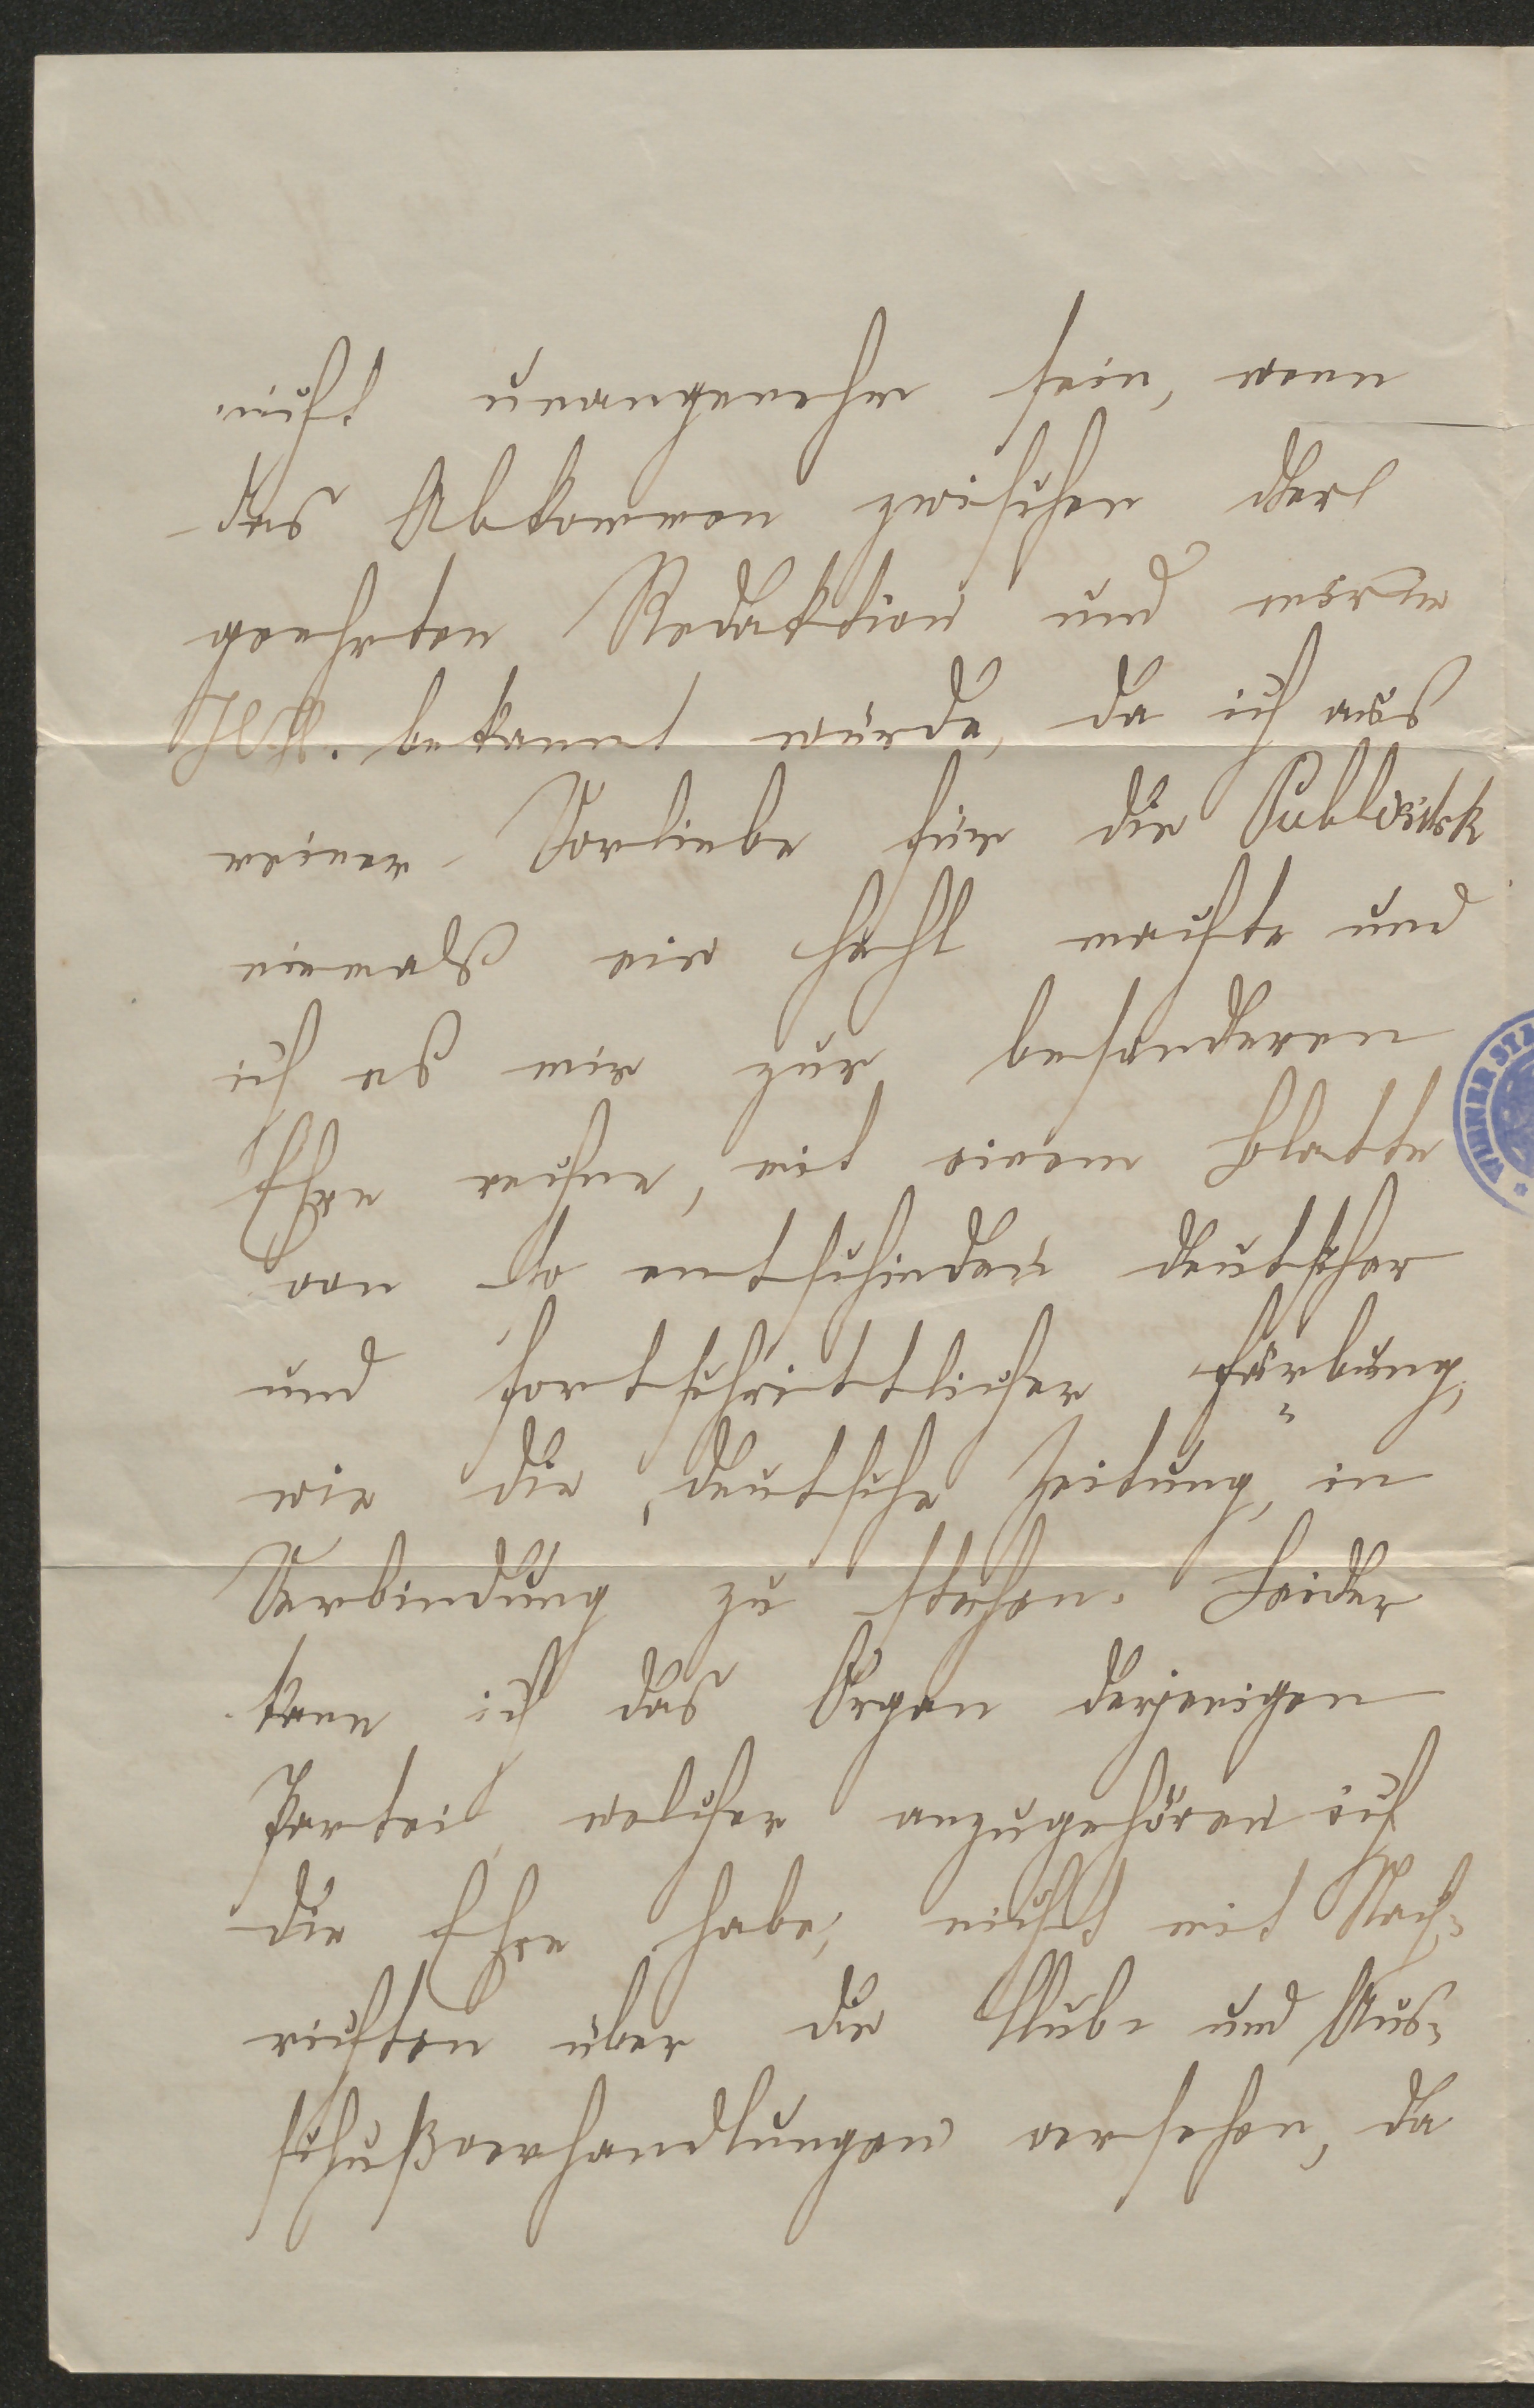 nicht unangenehm sein, wenn
das Abkommen zwischen der
geehrten Redaktion und
bekannt würde, da ich aus
meiner Vorliebe für die Publicistik
niemals ein Hehl machte und
ich es mir zur besonderen
Ehre rechne, mit einem Blatte
von so entschieden deutscher
und fortschrittlicher Färbung,
wie die „deutsche Zeitung“ in
Verbindung zu stehen. Leider
kann ich das Organ derjenigen
Partei, welcher anzugehören ich
die Ehre habe, nicht mit Nach-
richten über die Klub- und Aus-
schußverhandlungen versehen, da
WIENER